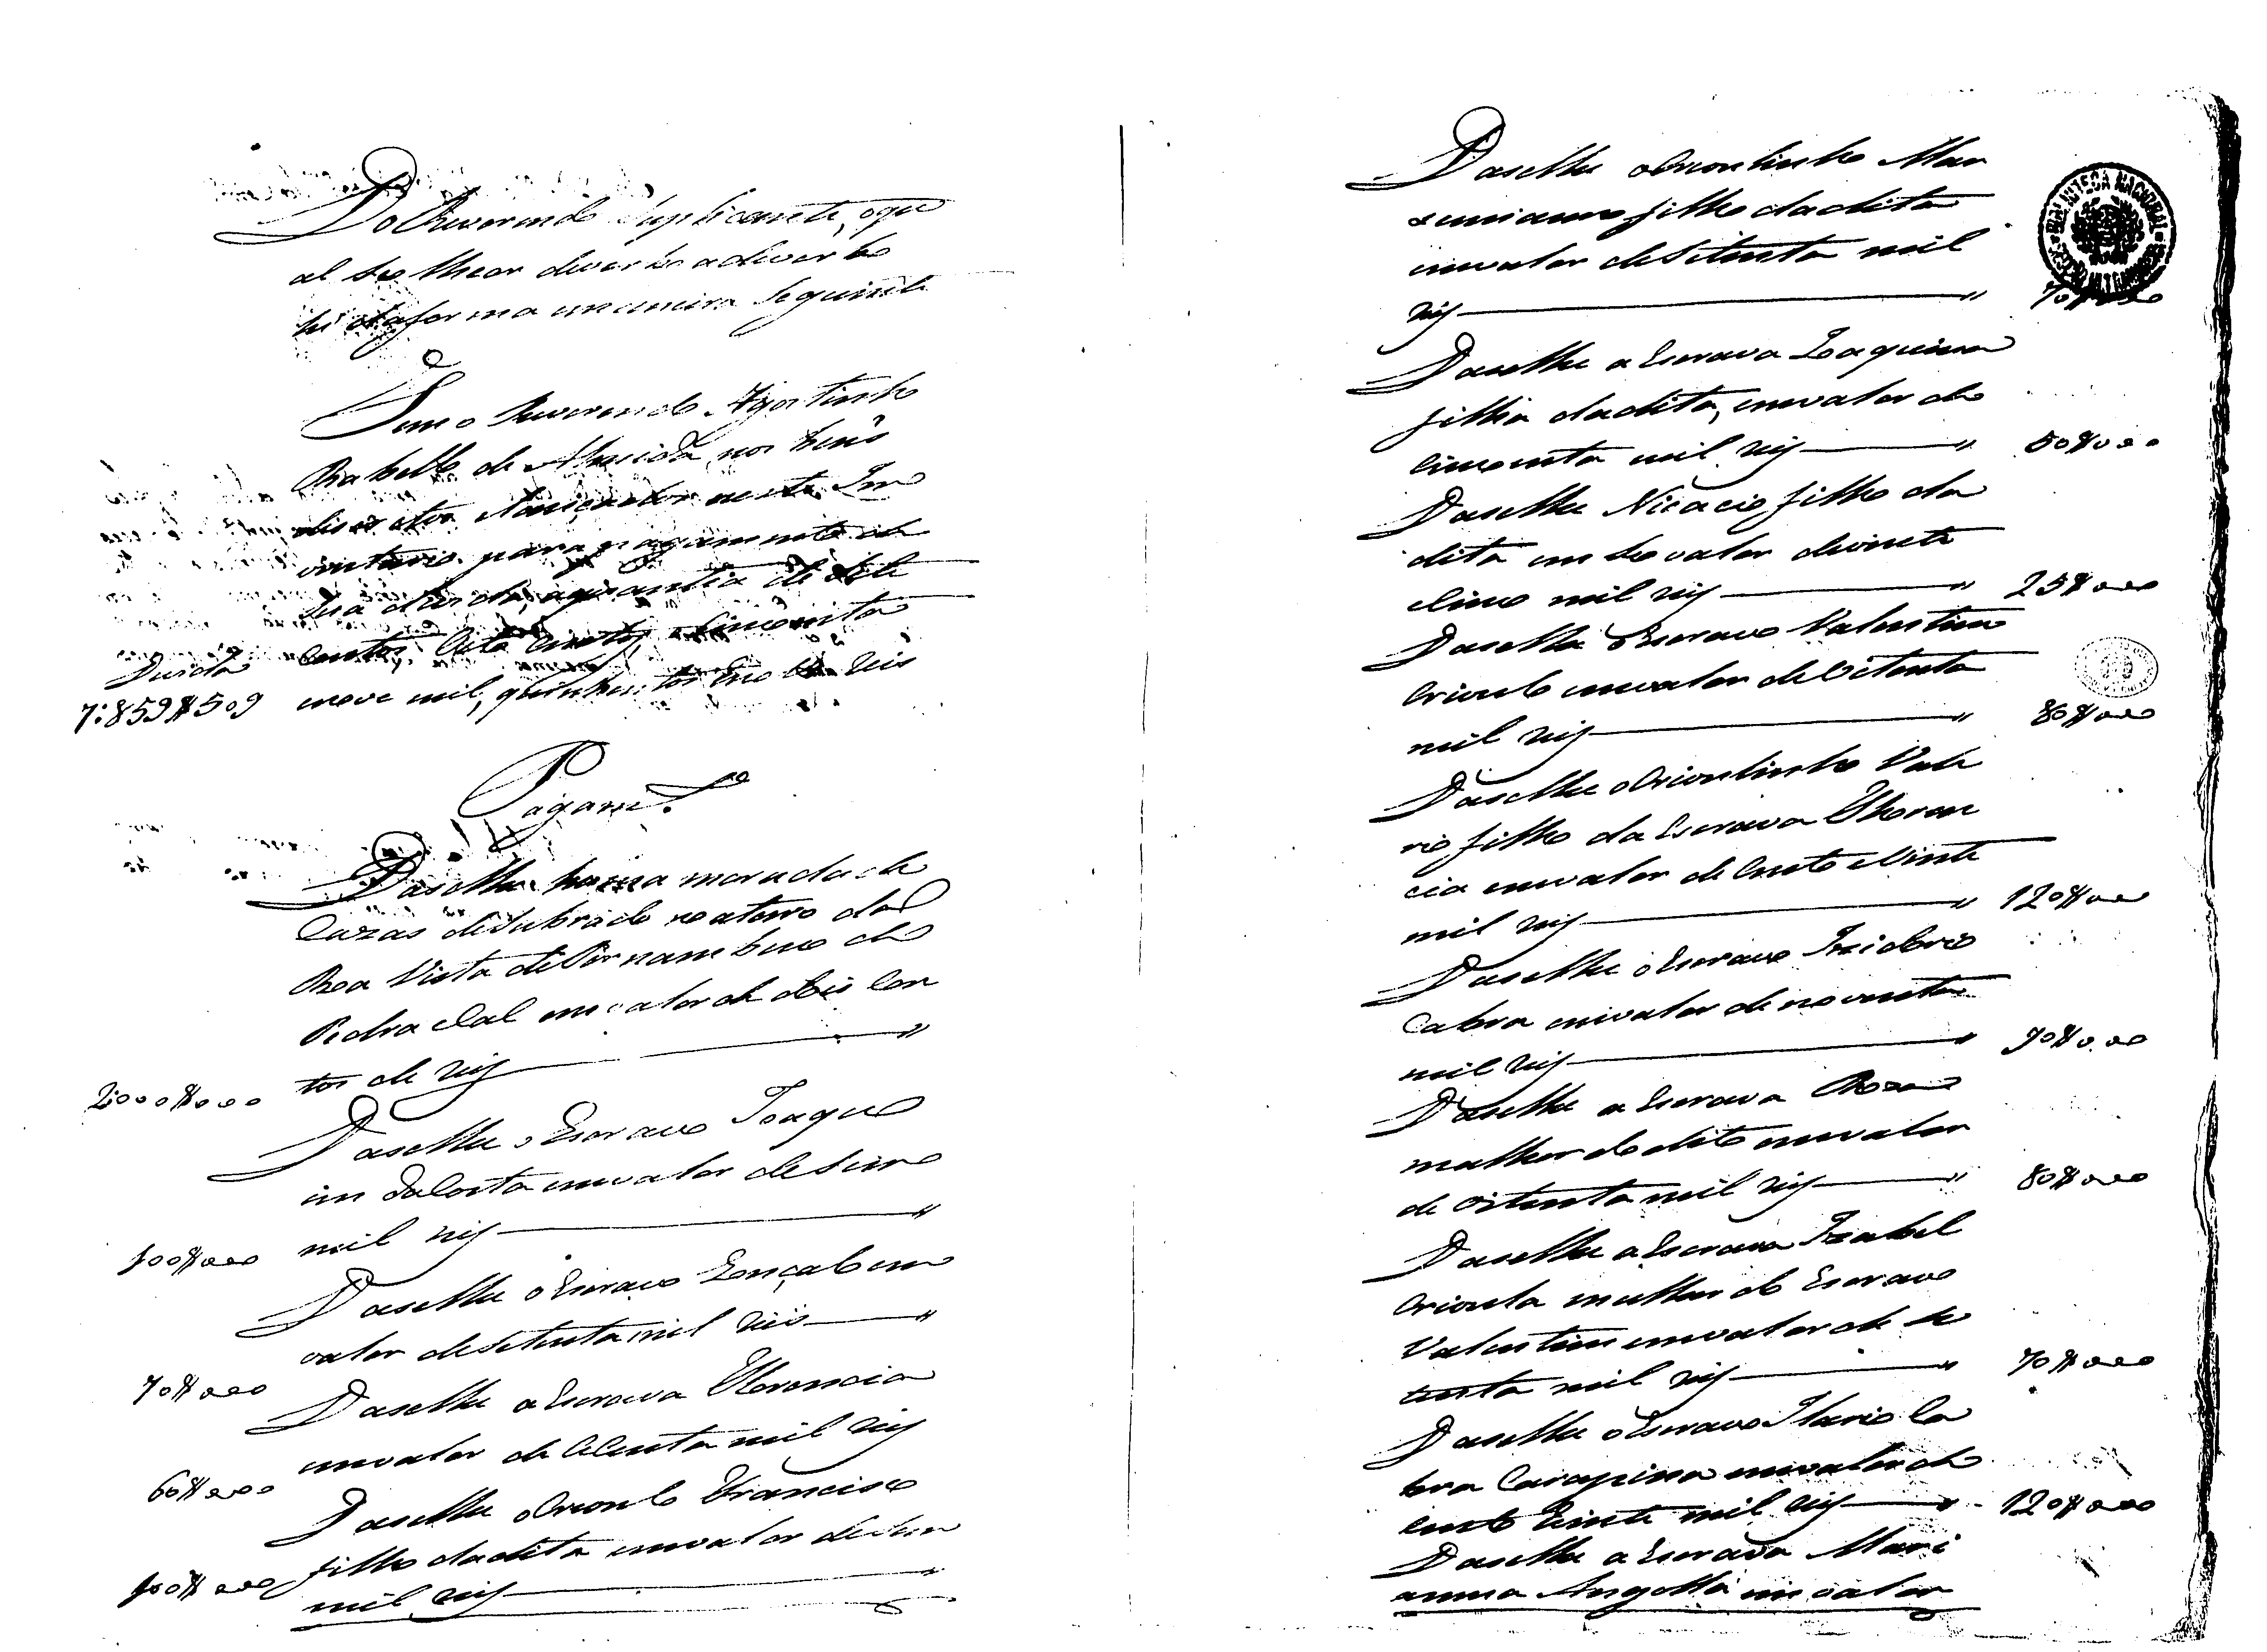 Do Reverendo Suplicante, oqu
al se lhe ar
forma emaneira Seguinte
Tem o Reverendo Agostinho
Rabello de Almeida, nos bens
neste In
ventario para pagamento de
Sua divida, aquantia de Sete
Contos oito Centos, e Cincoenta
Divida
7:859$509 nove mil, quinhentos e nove Reis
Pagam.to
Dáselhe huma morada de
Cazas deSubrado no aterro da
Boa Vista de Pernambuco de
Pedra eCal em valor de dois Con
2:000$000 tos de reis
Dáselhe o Escravo Joaqu
im daCosta emvalor de Cem
100$000 mil reis
Dáselhe o Escravo Gonçalo em
valor deSetenta mil Reis
70$000
Dáselhe a Escrava Florencia
emvalor de Cecenta mil reis
60$000
Dáselhe o Crioulo Francisco
filho dadita emvalor deCem
100$000 mil reis
Dáselhe o Crioulinho Max
emiano filho dadita
emvalor deSetenta mil
reis 70$000
Dáselhe a Escrava Joaquina
filha dadita, emvalor de
Cincoenta mil reis 50$000
Dáselhe Nicacio filho da
dita em Seo valor devinte
Cinco mil reis 25$000
Dáselhe o Escravo Valentim
Crioulo emvalor de Oitenta
mil reis 80$000
Dáselhe o Crioulinho Vale
rio filho da Escrava Floren
cia emvalor de Cento eVinte
mil reis 120$000
Dáselhe o Escravo Izidorio
Cabra emvalor de noventa
mil reis 90$000
Dáselhe a Escrava Roza
mulher do dito emvalor
de Oitenta mil reis 80$000
Dáselhe a Escrava Izabel
Crioula mulher do Escravo
Valentim emvalor de Se
tenta mil reis 70$000
Dáselhe o Escravo Ilario Ca
bra Carapina emvalor de
Cento eVinte mil reis 120$000
Dáselhe a Escrava Mari
anna Angolla em valor
BIBLIOTECA NACIONAL